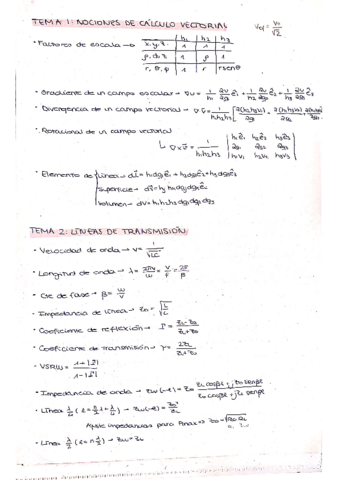 TEMA 1: NOCIONES DE CÁLCULO VECTORIAL
Vef = V0/√2
h1 h2 h3
• Factores de escala → x, y, z 1 1 1
ρ, φ, z 1 ρ 1
r, θ, φ 1 r r senθ
• Gradiente de un campo escalar → ∇U = 1/h1 ∂U/∂q1 ê1 + 1/h2 ∂U/∂q2 ê2 + 1/h3 ∂U/∂q3 ê3
• Divergencia de un campo vectorial → ∇ v̄ = 1/h1h2h3
• Rotacional de un campo vectorial
↳ ∇ x v̄ = 1/h1h2h3 | h1ê1 h2ê2 h3ê3 |
∂q1 ∂q2 ∂q3
h1v1 h2v2 h3v3
• Elemento de línea → dl = h1dq1ê1 + h2dq2ê2 + h3dq3ê3
superficie →
volumen → dv = h1h2h3 dq1dq2dq3
TEMA 2: LÍNEAS DE TRANSMISIÓN
• Velocidad de onda → v = 1/√LC
• Longitud de onda → λ = 2πv/ω = v/f = 2π/β
• Cte de fase → β = ω/v
• Impedancia de línea → Z0 = √L/C
• Coeficiente de reflexión → Γ = ZL-Z0/ZL+Z0
• Coeficiente de transmisión → τ = 2ZL/ZL+Z0
• VSRW = 1+|Γ|/1-|Γ|
• Impedancia de onda → Zw(-l) = Z0 ZL cosβl + jZ0 senβl/Z0 cosβl + jZL senβl
• Línea λ/4 → Zw(-l) = Z0²/ZL
Ajuste impedancias para Pmax →
• Línea λ/2 → Zw = ZL